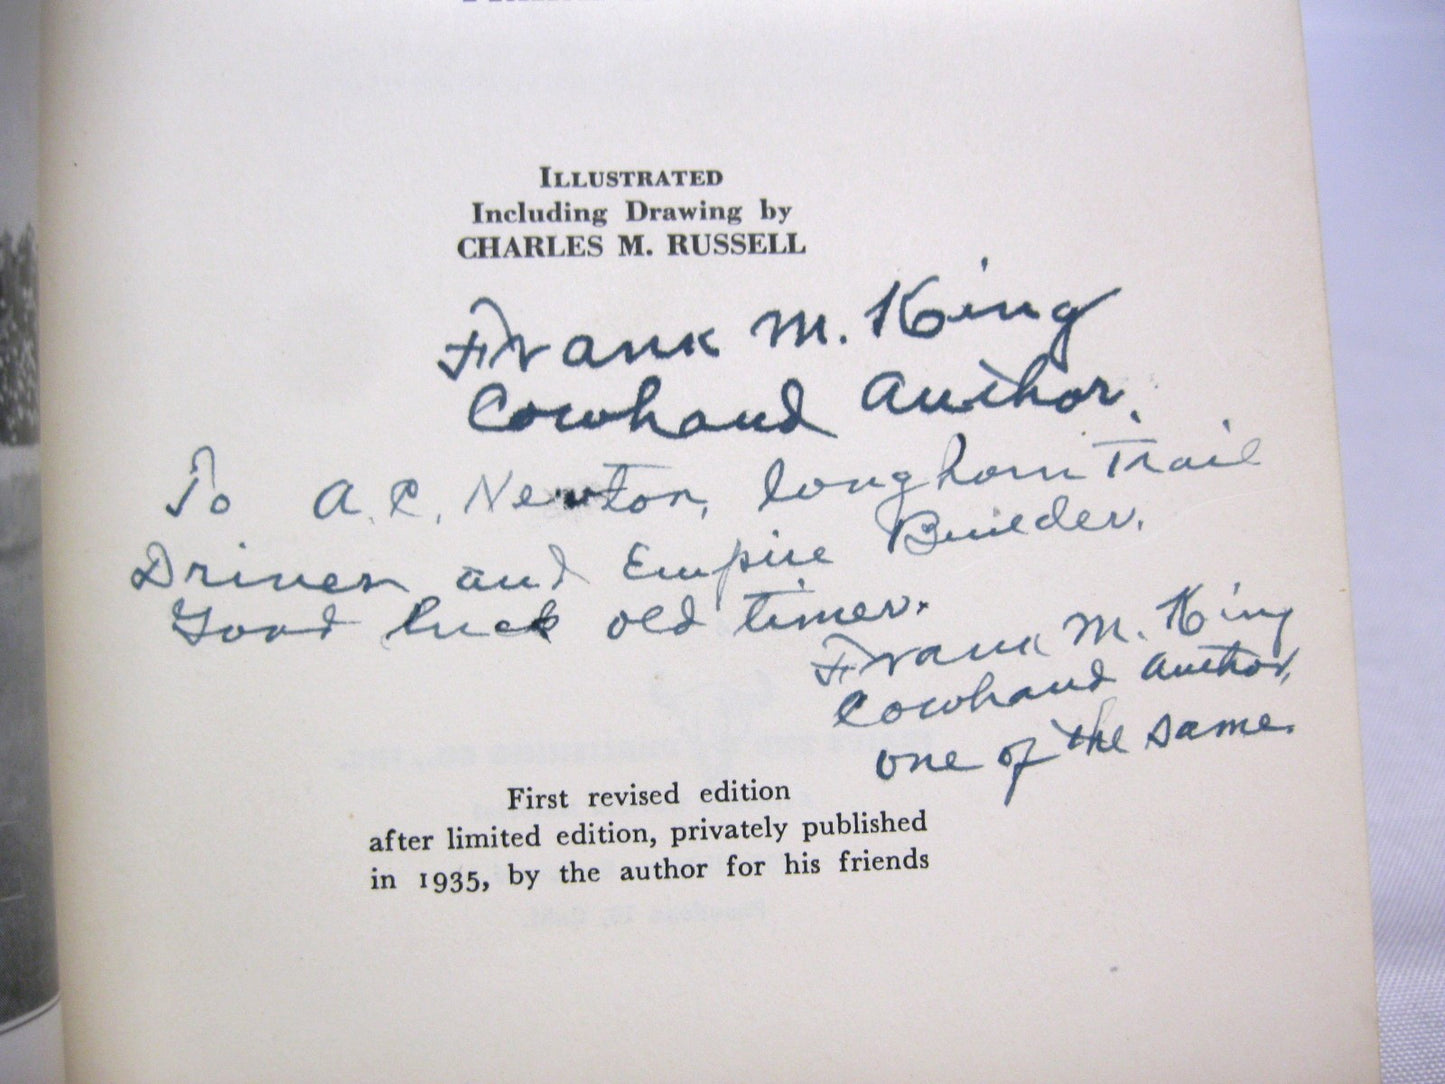 ILLUSTRATED
Including Drawing by
CHARLES M. RUSSELL
Frank M. King
Cowhand Author.
To A.C. Newton, longhorn Trail
Driver and Empire Builder.
Good luck old timer.
Frank M. King
Cowhand Author,
one of the same.
First revised edition
after limited edition, privately published
in 1935, by the author for his friends